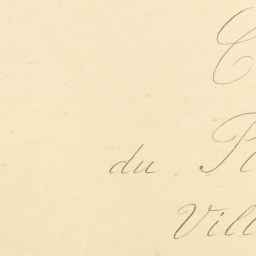 C
du P
Vill